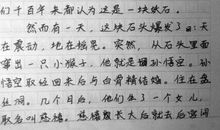 们千百年来都认为这是一块顽石。
然而有一天，这块石头爆发了：天
在震动，地在摇晃。突然，从石头里面
蹦出一只小猴子，他就是猴子孙悟空。孙
悟空取经回来后与白骨精结婚，住在盘
丝洞。几个月后，他们生了一个女儿，
取名叫慈禧。慈禧般长大后就去后宫词